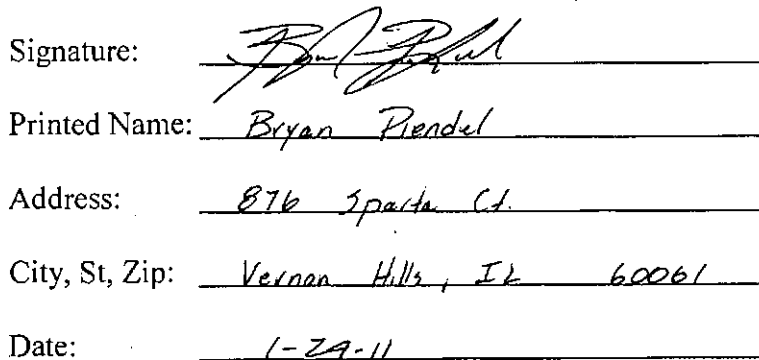 Signature:
Printed Name: Bryan Piendel
Address: 876 Sparta Ct.
City, St, Zip: Vernon Hills, IL 60061
Date: 1-29-11